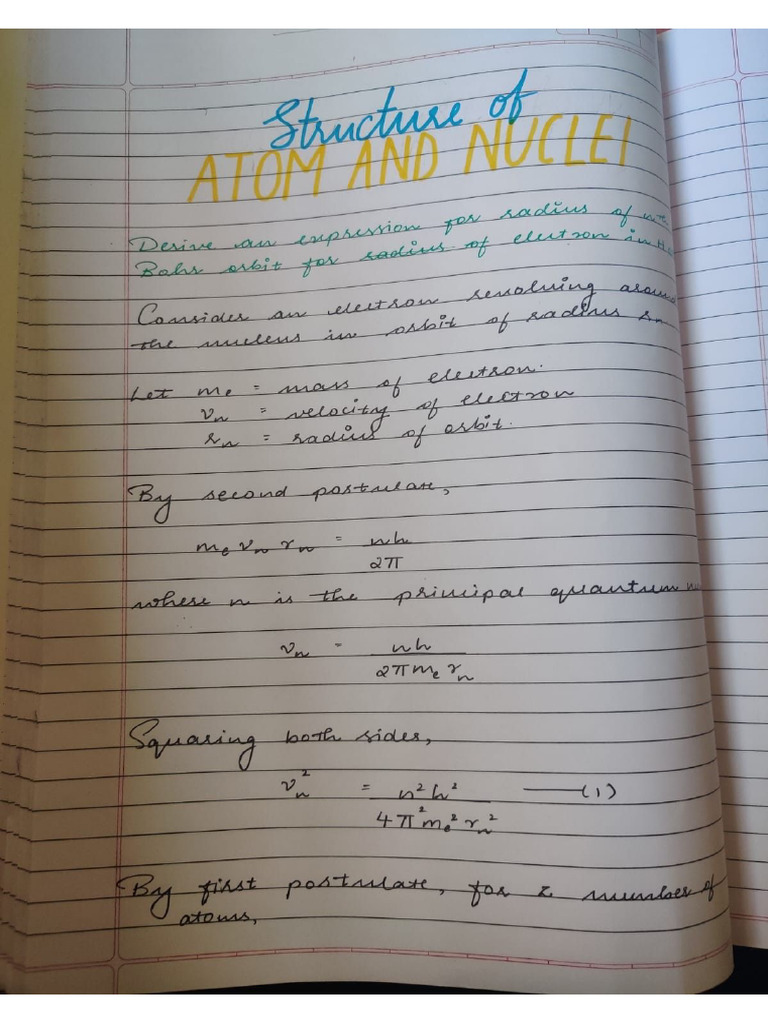 Structure of
ATOM AND NUCLEI
Derive an expression for radius of nth
Bohr orbit for radius of electron in H
Consider an electron revolving around
the nucleus in orbit of radius rn
Let me = mass of electron.
vn = velocity of electron
rn = radius of orbit.
By second postulate,
me vn rn = nh
2π
where n is the principal quantum
vn = nh
2πme rn
Squaring both sides,
vn² = n²h² —— (1)
4π²me²rn²
By first postulate, for z number of
atoms,